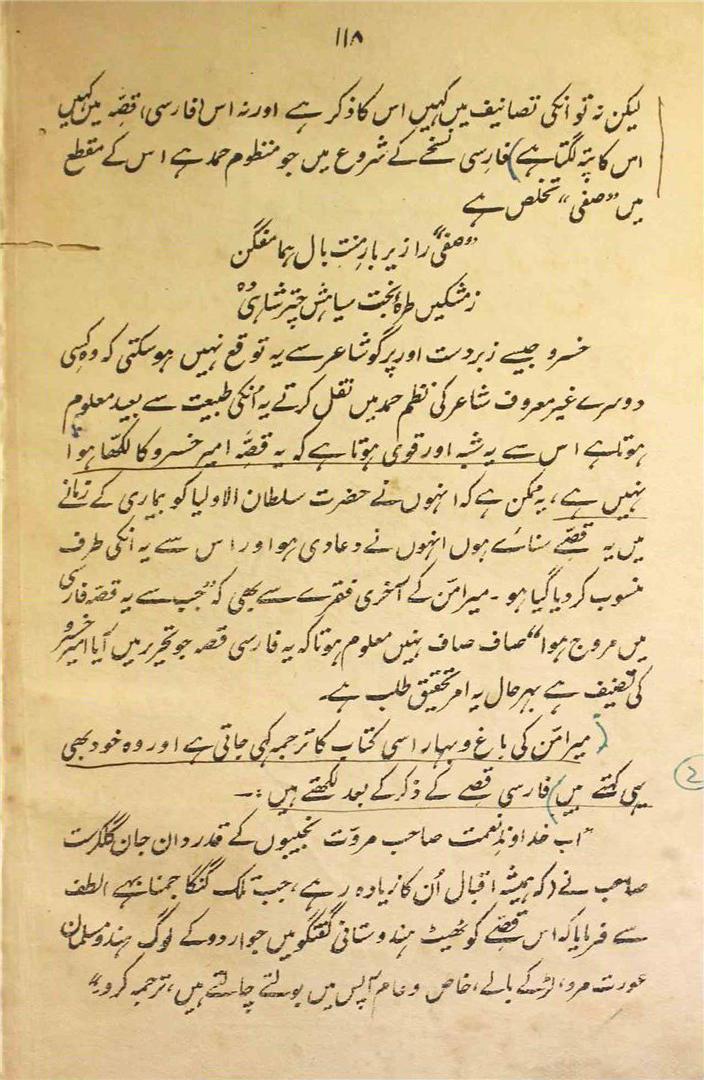 ۱۱۸
لیکن نہ تو انکی تصانیف میں کہیں اس کا ذکر ہے اور نہ اس (فارسی) قصّہ میں کہیں
اس کا پتہ لگتا ہے) فارسی نسخے کے شروع میں جو منظوم حمد ہے اس کے مقطع
میں "صفی" تخلص ہے
"صفی" را زیر بارِ منتِ بال ہما مفگن
ز مشکیں طرۂ بخت سیاہش چتر شاہی دہ
خسرو جیسے زبردست اور پرگو شاعر سے یہ توقع نہیں ہوسکتی کہ وہ کسی
دوسرے غیر معروف شاعر کی نظم حمد میں نقل کرتے یہ اُنکی طبیعت سے بعید معلوم
ہوتا ہے اس سے یہ شبہ اور قوی ہوتا ہے کہ یہ قصّہ امیر خسرو کا لکھا ہوا
نہیں ہے، یہ ممکن ہے کہ انہوں نے حضرت سلطان الاولیا کو بیماری کے زمانے
میں یہ قصّے سنائے ہوں انہوں نے دعا دی ہو اور اس سے یہ انکی طرف
منسوب کر دیا گیا ہو ۔ میرامّن کے آخری فقرے سے بھی کہ "جب سے یہ قصّہ فارسی
میں مروج ہوا" صاف صاف نہیں معلوم ہوتا کہ یہ فارسی قصہ جو تحریر میں آیا امیر خسرو
کی تصنیف ہے بہرحال یہ امر تحقیق طلب ہے۔
(میرامّن کی باغ و بہار اسی کتاب کا ترجمہ کہی جاتی ہے اور وہ خود بھی
یہی کہتے ہیں) فارسی قصے کے ذکر کے بعد لکھتے ہیں :۔
۲
"اب خداوندِ نعمت صاحب مروّت نجیبوں کے قدردان جان گلکرسٹ
صاحب نے (کہ ہمیشہ اقبال اُن کا زیادہ رہے، جب تلک گنگا جمنا بہے) لطف
سے فرمایا کہ اس قصّے کو ٹھیٹ ہندوستانی گفتگو میں جو اردو کے لوگ ہندو مسلمان
عورت مرد، لڑکے بالے، خاص و عام آپس میں بولتے چالتے ہیں، ترجمہ کرو۔"